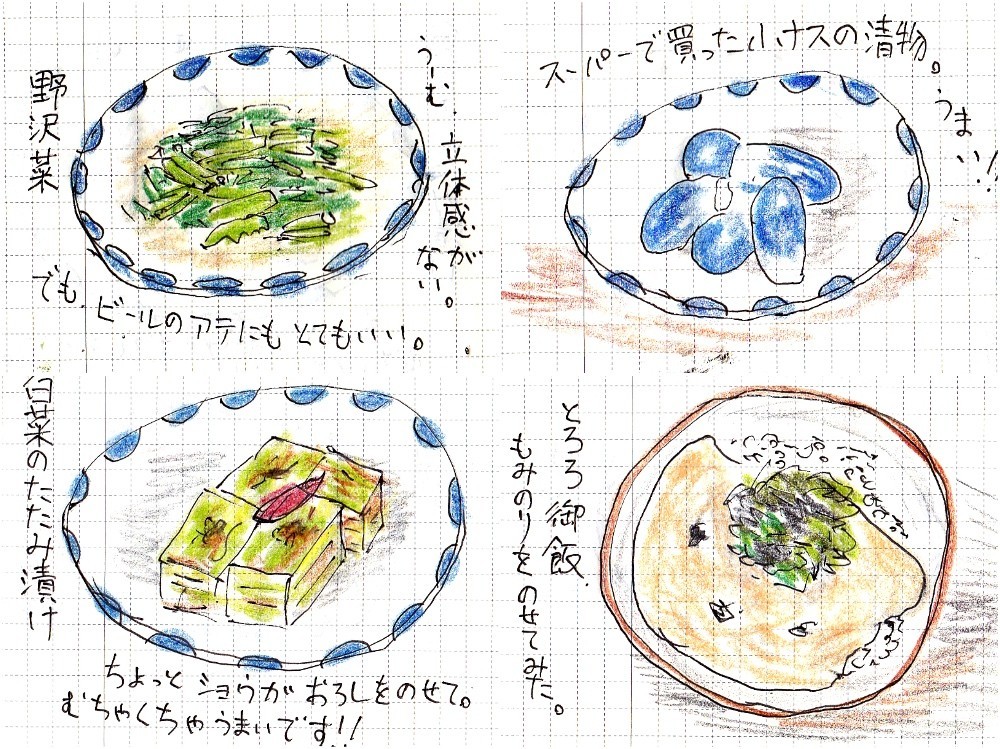 野沢菜
うーむ、立体感が
ない。
でも、ビールのアテにもとてもいい。
スーパーで買った小ナスの漬物。
うまい!!
白菜のたたみ漬け
ちょっとショウガおろしをのせて。
むちゃくちゃうまいです!!
とろろ御飯、
もみのりをのせてみた。